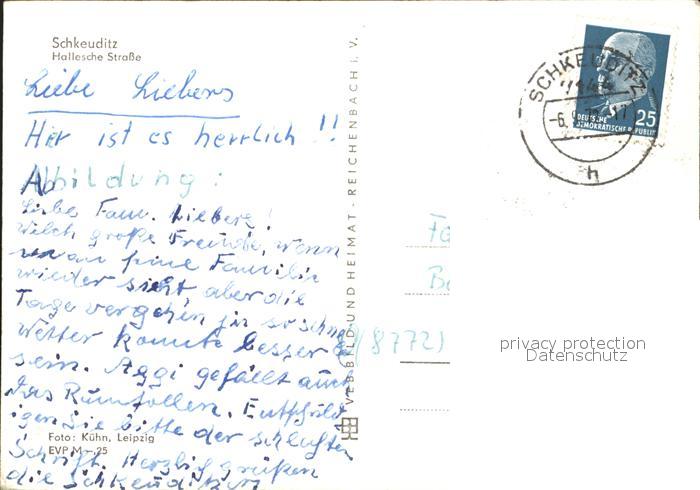 Schkeuditz
Hallesche Straße
Liebe Liebers
Hier ist es herrlich !!
Abbildung :
Liebe Fam. Liebers!
Welch große Freude, wenn
man seine Familie
wieder sieht aber die
Tage vergehen ja so schnell
Wetter konnte besser
sein. Aggi gefällt auch
das Rumtollen. Entschuld
igen Sie bitte der schlechten
Schrift. Herzlich grüßen
die Schkeuditzer
Foto: Kühn, Leipzig
EVP M -.25
VEB BILD UND HEIMAT · REICHENBACH I. V.
SCHKEUDITZ
1144
-6.
17
h
25
DEUTSCHE
DEMOKRATISCHE REPUBLIK
Fa
Be
(8772)
privacy protection
Datenschutz